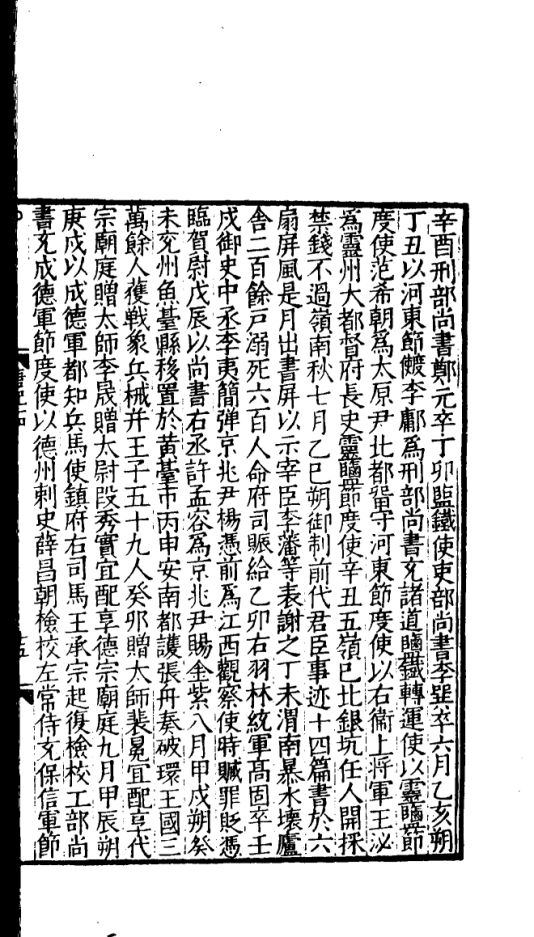 辛酉刑部尚書鄭元卒丁卯鹽鐵使吏部尚書李巽卒六月乙亥朔
丁丑以河東節度李鄘爲刑部尚書充諸道鹽鐵轉運使以靈鹽節
度使范希朝爲太原尹北都留守河東節度使以右衛上將軍王泌
爲靈州大都督府長史靈鹽節度使辛丑五嶺已北銀坑任人開採
禁錢不過嶺南秋七月乙巳朔御制前代君臣事迹十四篇書於六
扇屏風是月出書屏以示宰臣李藩等表謝之丁未渭南暴水壞廬
舍二百餘戶溺死六百人命府司賑給乙卯右羽林統軍高固卒壬
戌御史中丞李夷簡彈京兆尹楊憑前爲江西觀察使時贓罪貶憑
臨賀尉戊辰以尚書右丞許孟容爲京兆尹賜金紫八月甲戌朔癸
未兖州魚臺縣移置於黄臺市丙申安南都護張舟奏破環王國三
萬餘人獲戰象兵械并王子五十九人癸卯贈太師裴冕宜配享代
宗廟庭贈太師李晟贈太尉段秀實宜配享德宗廟庭九月甲辰朔
庚戌以成德軍都知兵馬使鎮府右司馬王承宗起復檢校工部尚
書充成德軍節度使以德州刺史薛昌朝檢校左常侍充保信軍節